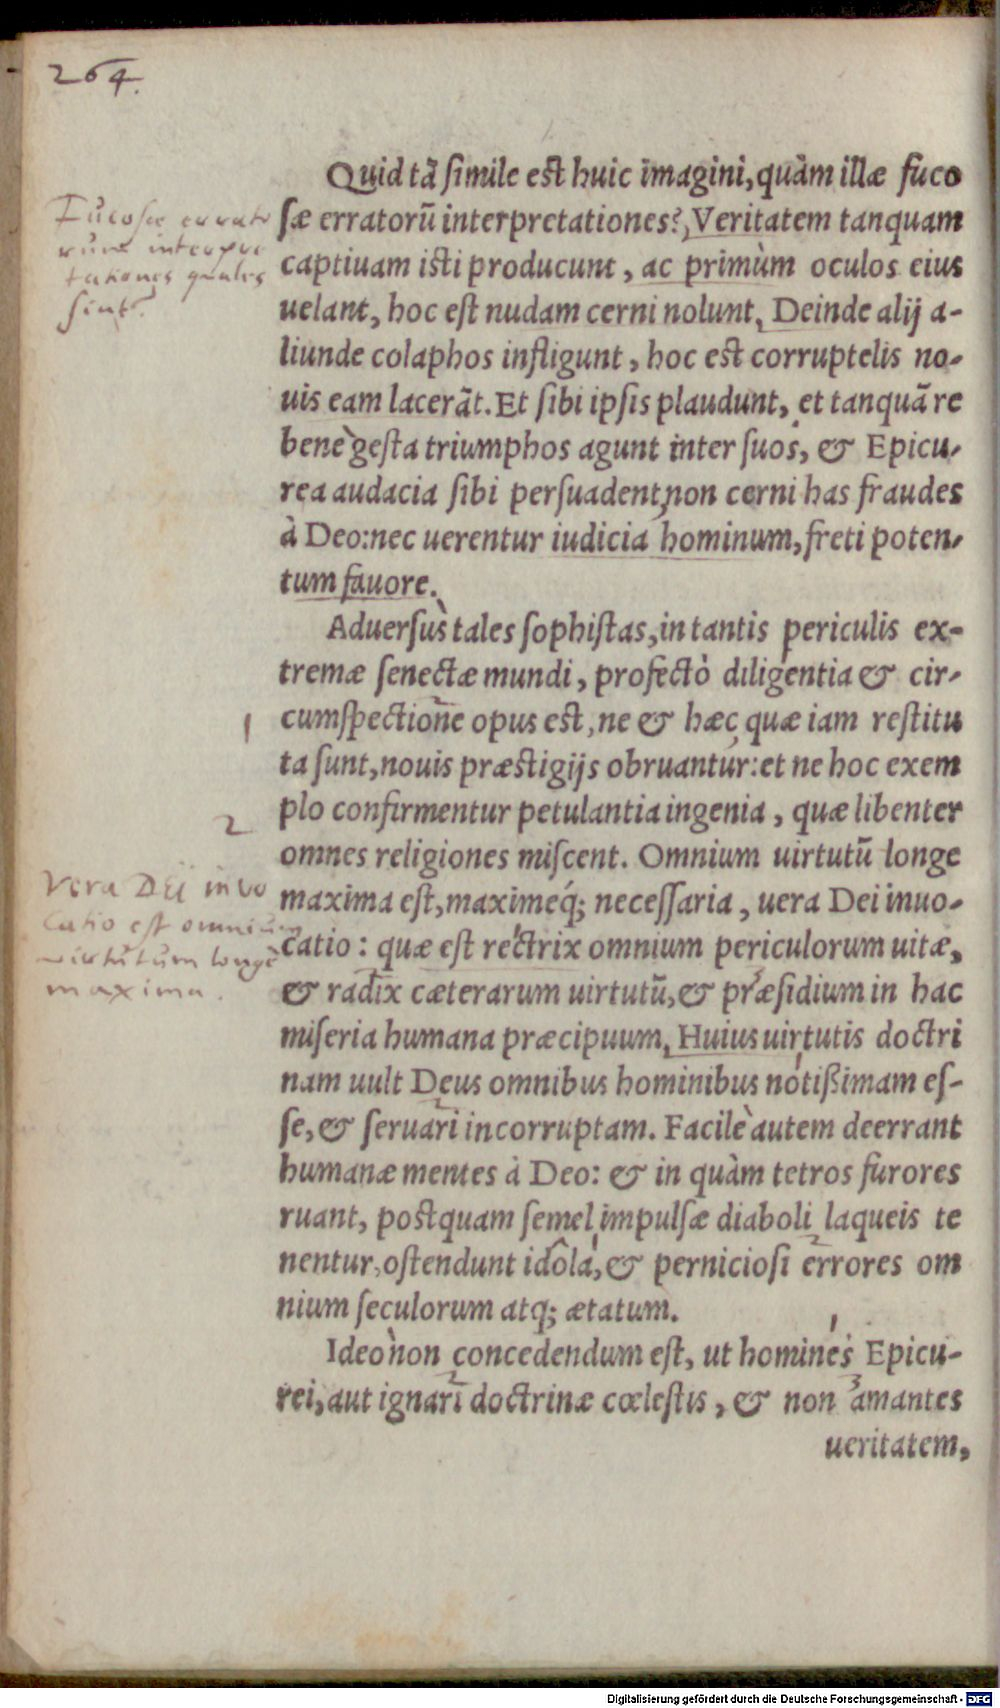 264.
Quid tã simile est huic imagini, quàm illæ fuco
sæ erratorũ interpretationes? Veritatem tanquam
captiuam isti producunt, ac primùm oculos eius
uelant, hoc est nudam cerni nolunt, Deinde alij a-
liunde colaphos infligunt, hoc est corruptelis no-
uis eam lacerãt. Et sibi ipsis plaudunt, et tanquã re
benè gesta triumphos agunt inter suos, & Epicu-
rea audacia sibi persuadent, non cerni has fraudes
à Deo: nec uerentur iudicia hominum, freti poten-
tum fauore.
Aduersus tales sophistas, in tantis periculis ex-
tremæ senectæ mundi, profectò diligentia & cir-
cumspectione opus est, ne & hæc quæ iam restitu
ta sunt, nouis præstigijs obruantur: et ne hoc exem
plo confirmentur petulantia ingenia, quæ libenter
omnes religiones miscent. Omnium uirtutũ longe
maxima est, maximeq́; necessaria, uera Dei inuo-
catio: quæ est rectrix omnium periculorum uitæ,
& radix cæterarum uirtutũ, & præsidium in hac
miseria humana præcipuum, Huius uirtutis doctri
nam uult Deus omnibus hominibus notißimam es-
se, & seruari incorruptam. Facilè autem deerrant
humanæ mentes à Deo: & in quàm tetros furores
ruant, postquam semel impulsæ diaboli laqueis te
nentur, ostendunt idola, & perniciosi errores om
nium seculorum atq; ætatum.
Ideo non concedendum est, ut homines Epicu-
rei, aut ignari doctrinæ cœlestis, & non amantes
ueritatem,
Fucosæ errato
rum interpre
tationes quales
sint.
1
2
Vera Dei invo
catio est omnium
virtutum longè
maxima.
Digitalisierung gefördert durch die Deutsche Forschungsgemeinschaft - DFG